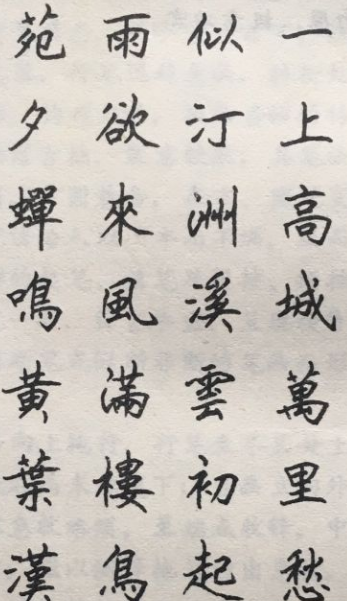 一上高城萬里愁
似汀洲溪雲初起
雨欲來風滿樓鳥
苑夕蟬鳴黃葉漢